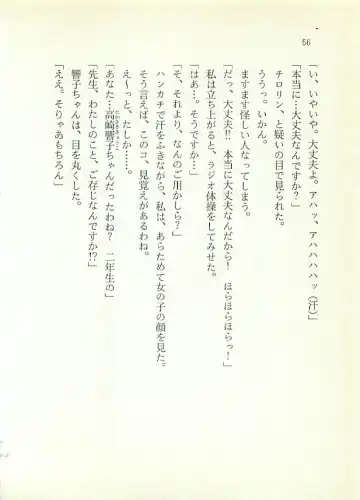 56
「い、いやいや。大丈夫よ。アハッ、アハハハハッ（汗）」
「本当に…大丈夫なんですか？」
チロリン、と疑いの目で見られた。
ううっ。いかん。
ますます怪しい人なってしまう。
「だっ、大丈夫!!　本当に大丈夫なんだから！　ほらほらほらっ！」
私は立ち上がると、ラジオ体操をしてみせた。
「はあ…。そうですか…」
「そ、それより、なんのご用かしら？」
ハンカチで汗をふきながら、私は、あらためて女の子の顔を見た。
そう言えば、このコ、見覚えがあるわね。
え〜っと、たしか……。
「あなた…高崎響子ちゃんだったわね？　二年生の」
「先生、わたしのこと、ご存じなんですか!?」
響子ちゃんは、目を丸くした。
「ええ。そりゃあもちろん」